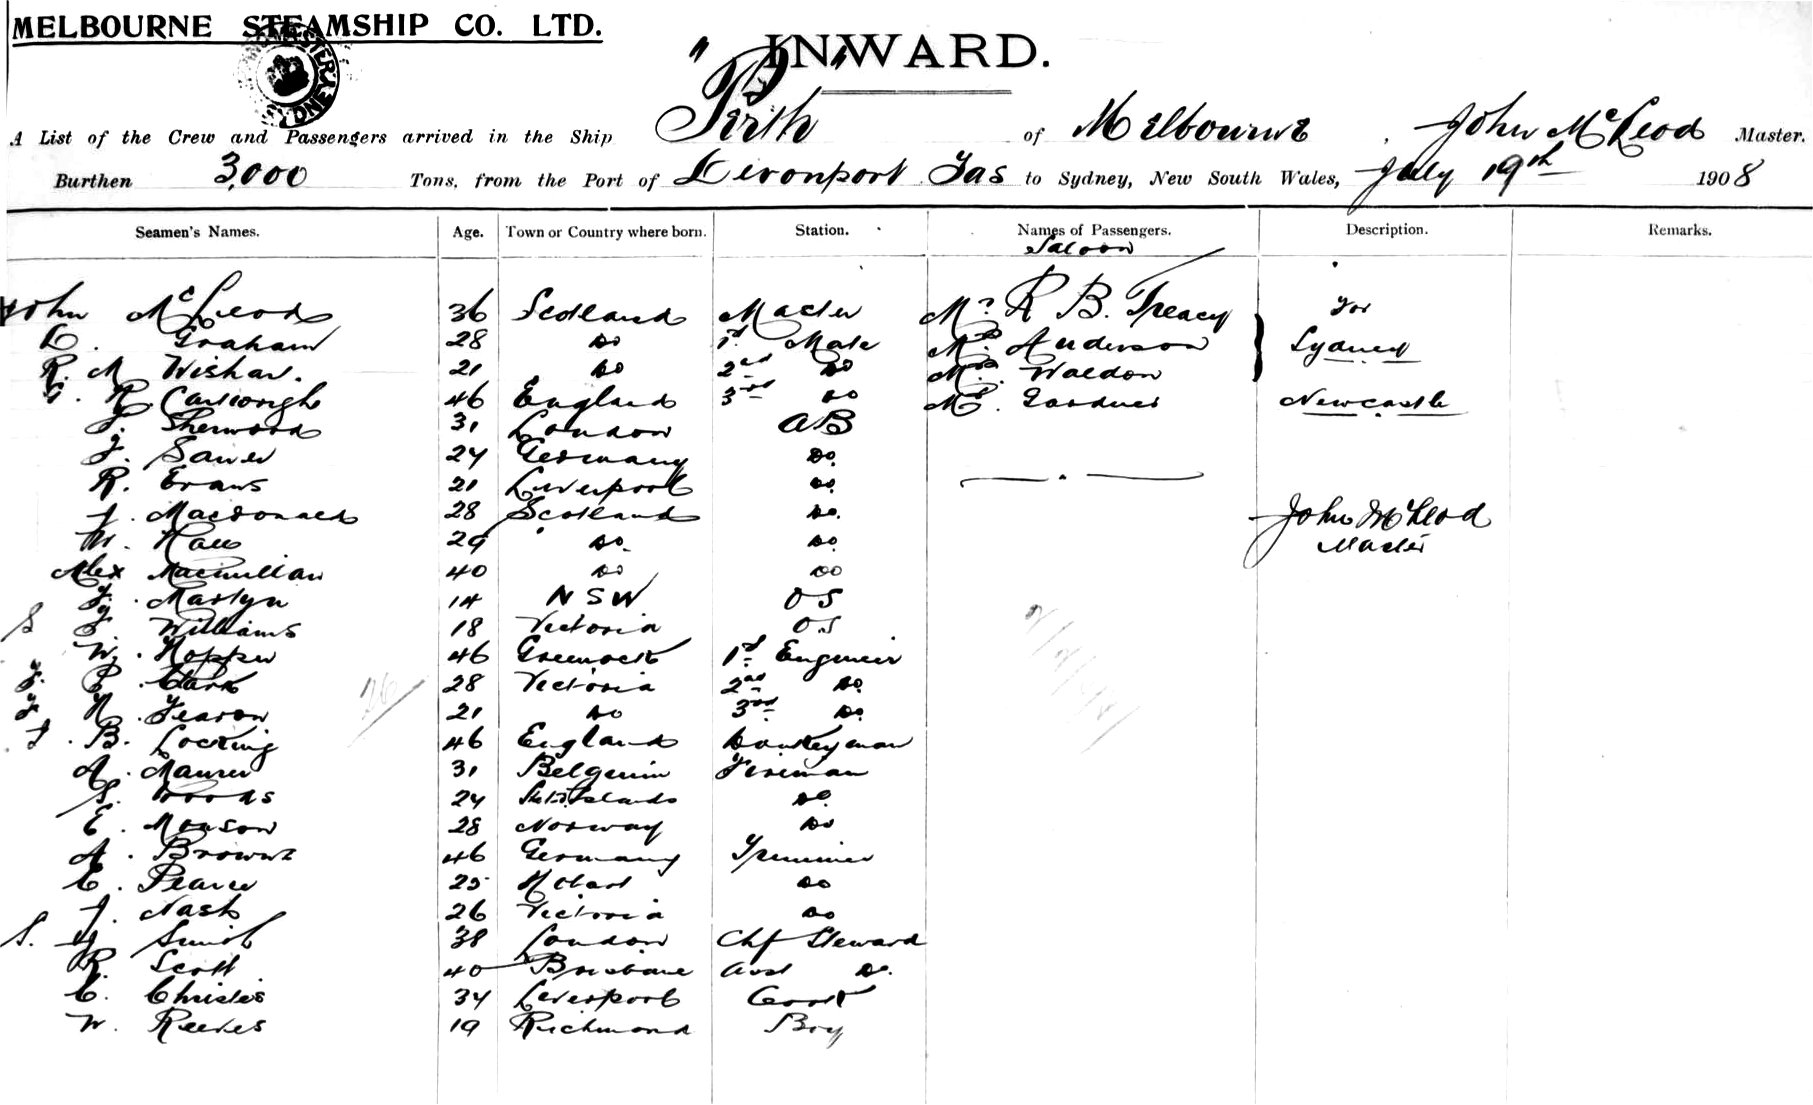 MELBOURNE STEAMSHIP CO. LTD.
INWARD.
A List of the Crew and Passengers arrived in the Ship "Perth" of Melbourne, John McLeod Master.
Burthen 3,000 Tons, from the Port of Devonport Tas to Sydney, New South Wales, July 19th 1908
Seamen's Names. Age. Town or Country where born. Station. Names of Passengers. Description. Remarks.
Saloon
John McLeod 36 Scotland Master Mr R B. Treacy for
D. Graham 28 Do 1st Mate Mr. Anderson Sydney
R. M Wishar. 21 Do 2nd Do Waldon
R. 46 England 3rd Do Gardner Newcastle
Sherwood 31 London AB
J. Sawer 24 Germany Do.
R. Evans 21 Liverpool Do.
J. Macdonald 28 Scotland Do.
29 Do. Do. John McLeod
Master
Alex Macmillan 40 Do Do
Martyn 14 NSW OS
S Williams 18 Victoria OS
W. Hopper 46 Greenock 1st Engineer
Clark 28 Victoria 2nd Do.
26
21 Do 3rd Do.
J. B. Locking 46 England Donkeyman
A. Maurer 31 Belguim Fireman
S. Woods 24 Do
E. Monson 28 Norway Do
A. Browne 46 Germany Trimmer
E. Pearce 25 Hobart Do
J. Nash 26 Victoria Do
S. Smith 38 London Chf Steward
R. Scott 40 Brisbane Asst Do.
C. Christie 34 Liverpool Cook
W. Reeves 19 Richmond Boy